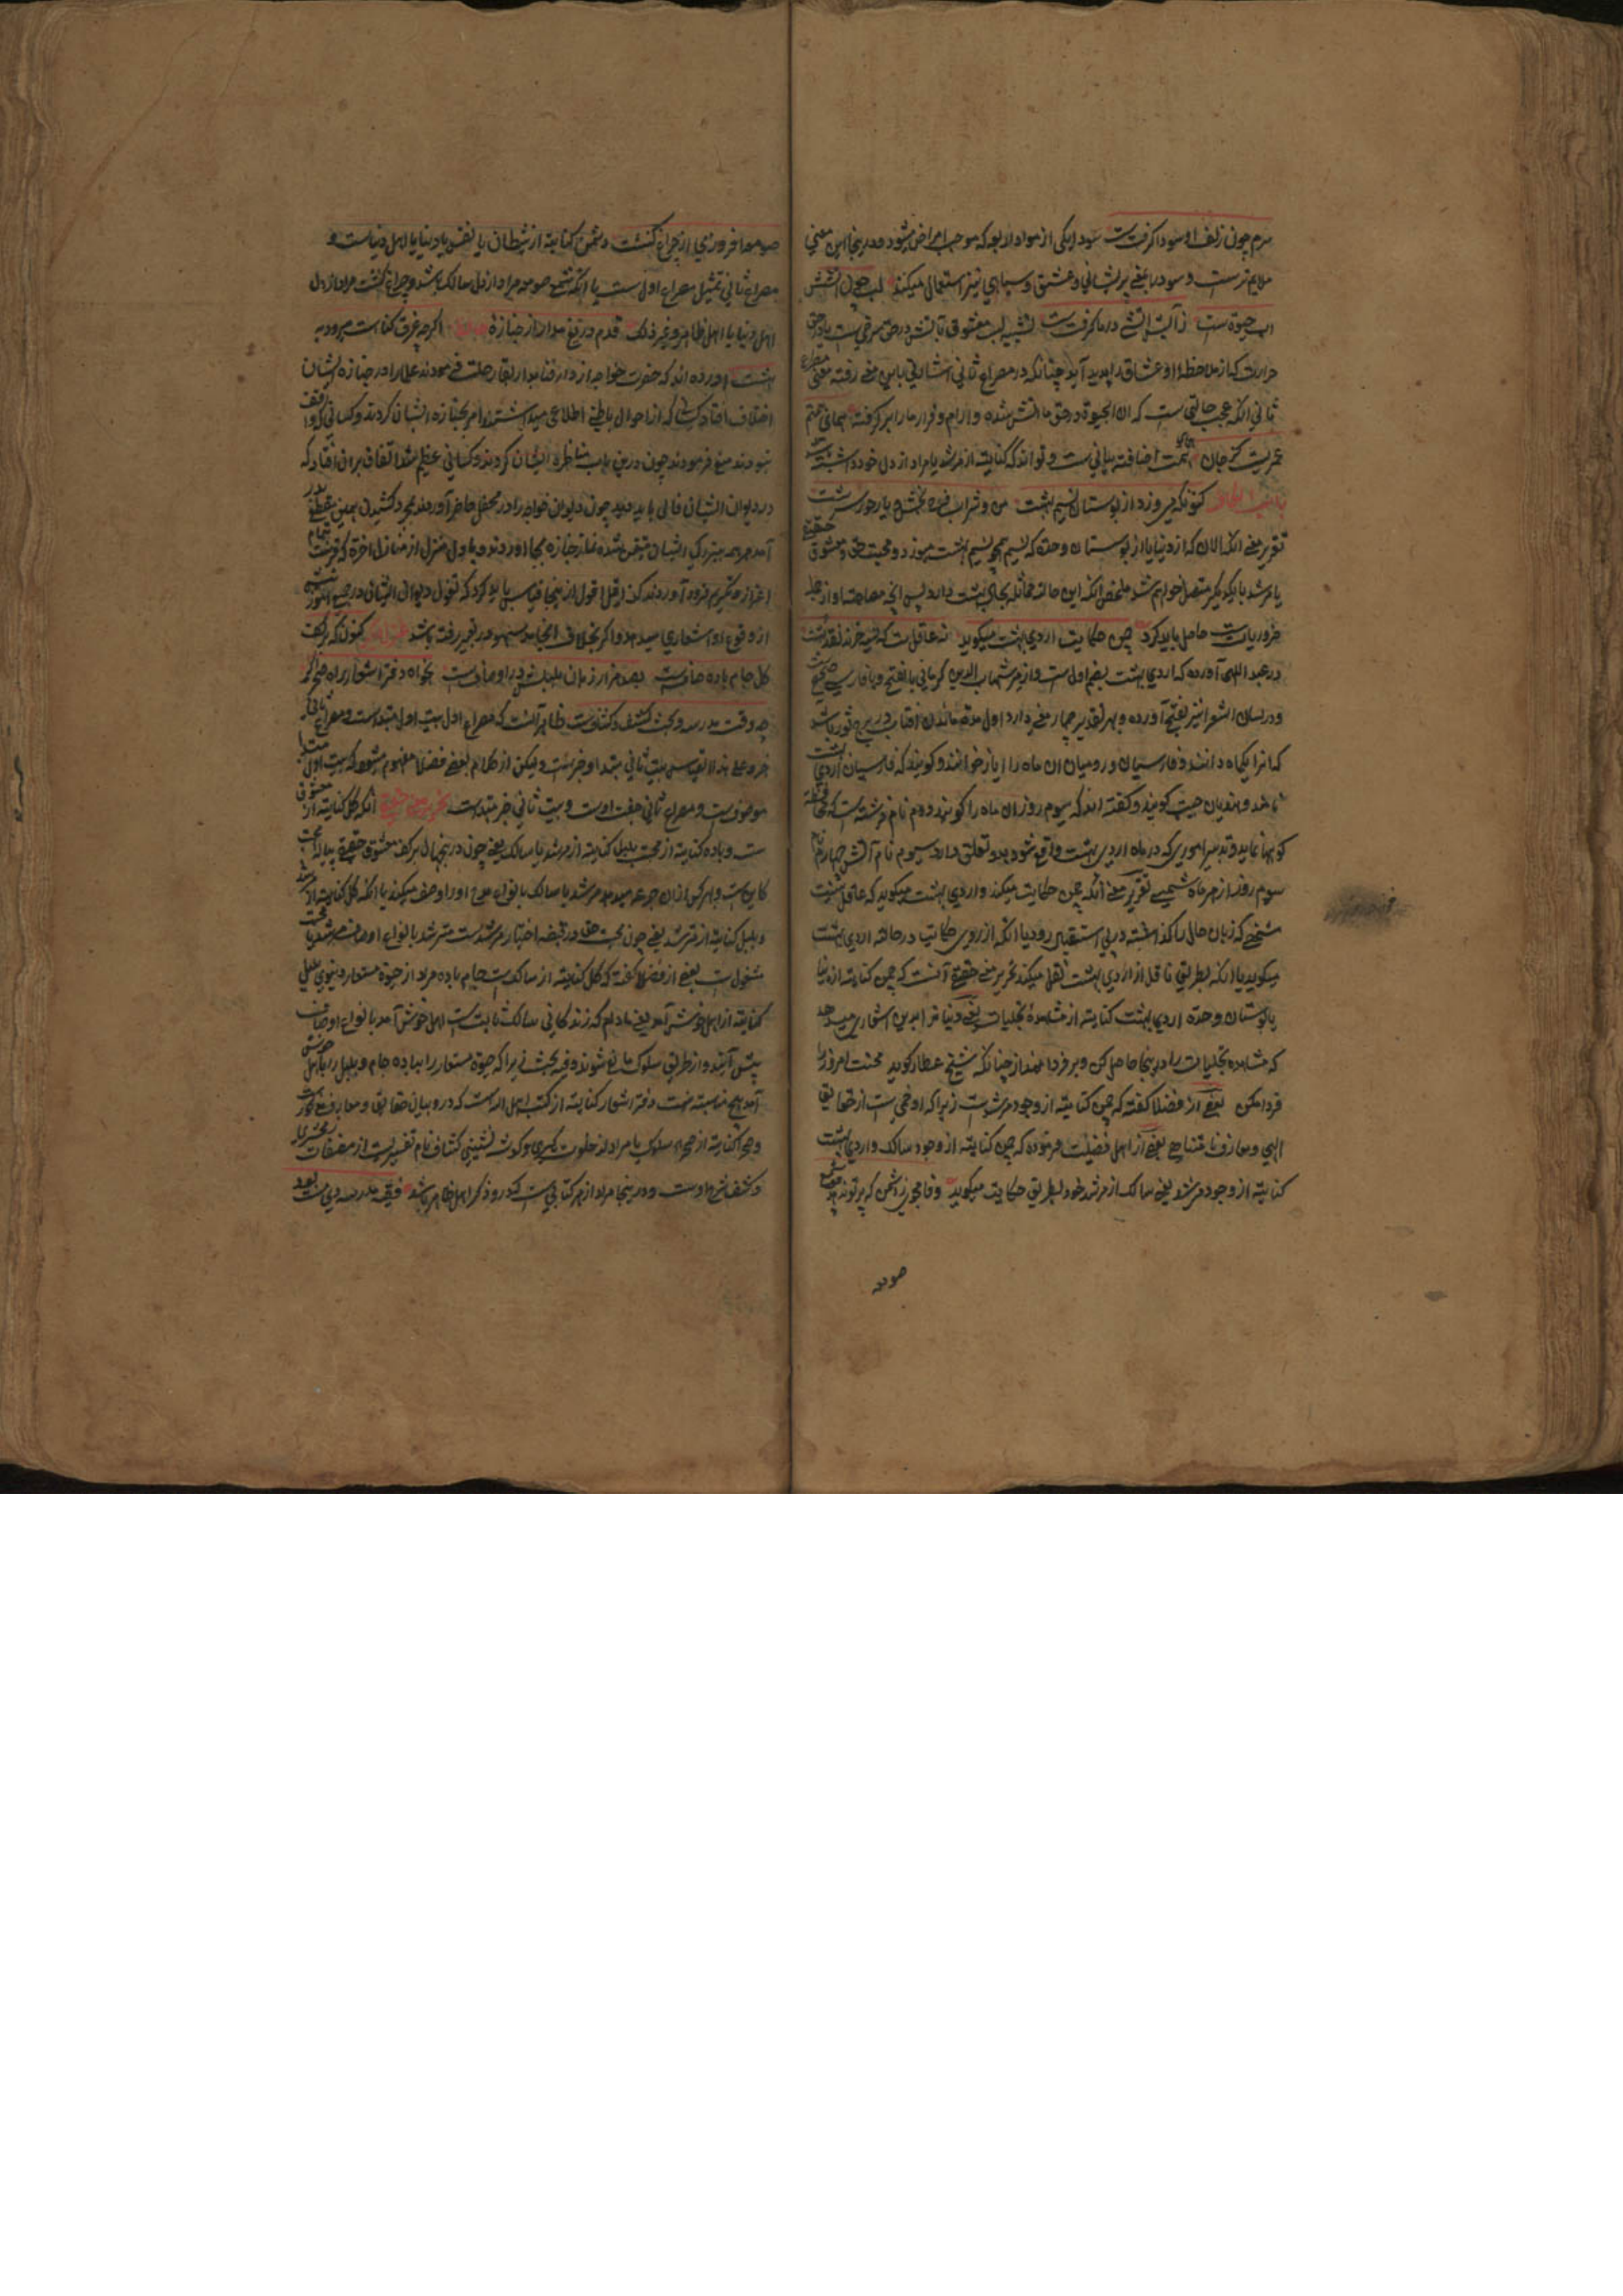 سرم چون زلف او سودا گرفت است سودا یکی از مواد لا بعه که موجب امراض میشود و درینجا این معنی
ملایم نرست و سودا بمعنی پریشانی و عشق و سیاهی نیز استعمال میکنند لب چون آتشش
اب حیوة ست زآن آتشی در ما گرفت است تشبیه لب معشوق تا بتش در حق سرخی ست یا در حق
حرارت که از ملاحظه او عشاق را پدید آید چنانکه در مصراع ثانی اشارتی باین معنی رفته معنی مصراع
ثانی آنکه عجب حالتی ست که آن آب حیوة در حق ما آتش شده و ارام و قرار ما را بر گرفته
عمریست کز جان اضافت بیانی ست و تواند که کنایة از مرشد یا مراد از دل خود داشته
کنونکه میوزد از بوستان نسیم بهشت من و شراب فرح بخش و یار حور سرشت
تقریر معنی آنکه الان که از دنیا یا از بوستان وحدة که نسیم همچو نسیم بهشت میوزد و محبت حق و معشوق حقیقی
یا مرشد با یکدیگر متصل خواهم شد ملخص آنکه این حالة مماثله بحال بهشت دارد پس آنچه
ضروریات ست حاصل باید کرد چمن حکایت اردی بهشت میگوید نه عاقلست که نسیه خرد و نقد بهشت
در عبد اللهی آورده که اردی بهشت بضم اول ست و از میر شهاب الدین کرمانی بالفتح و با فارسی صحیح
و در لسان الشعرا نیز بفتح آورده و بهر تقدیر چهار معنی دارد اول مدة ماندن افتاب در برج ثور باشد
که انرا یکماه دانند و فارسیان و رومیان ان ماه را ایار خوانند و گویند که فارسیان اردی بهشت
نامند و هندیان جیت گویند و گفته اند که سیوم روز ان ماه را گویند دوم نام فرشته ست که محافظه
کوهها نماید و تدبیر اموری که در ماه اردی بهشت واقع شود بدو تعلق دارد سیوم نام آتش چهارم نام
سیوم روز از هر ماه شمسی تقریر معنی آنکه چمن حکایت میکند و از اردی بهشت میگوید که عاقل نیست
شخصی که زبان حال را گذاشته در پی استقبال رود یا آنکه از روی حکایت در حالة اردی بهشت
میگوید یا آنکه بطریق ناقل از اردی بهشت نقل میکند تحریر معنی حقیقة آنست که چمن کنایة از دنیا
یا بوستان وحدة اردی بهشت کنایة از مشاهدة تجلیات یعنی دنیا مرا بدین اشعار میدهد
که مشاهده تجلیات را درینجا حاصل کن و بر فردا ممد از چنانکه شیخ عطار گوید محنت امروز را
فردا مکن بعضی از فضلا گفته که چمن کنایة از وجود مرشد است زیرا که او ست از حقایق
الهی و معارف نامتناهی بعضی از اهل فضیلت فرموده که چمن کنایة از وجود سالک و اردی بهشت
کنایة از وجود مرشد یعنی سالک از مرشد خود بطریق حکایت میگوید وفا مجوی ز دشمن که پرتوی ندهد
صومعه
صومعه افروزی از چراغ کنشت دشمن کنایة از شیطان یا نفس یا دنیا یا اهل دنیاست و
مصراع ثانی تمثیل مصراع اول ست یا آنکه شمع صومعه مراد از دل سالک باشد و چراغ کنشت مراد از دل
اهل دنیا یا اهل ظاهر و غیر ذلک قدم دریغ مدار از جنازهٔ حافظ اگرچه غرق گناه ست میرود به
بهشت آورده اند که حضرت خواجه از دار فنا بدار بقا رحلت فرمودند علما را در جنازه ایشان
اختلاف افتاد کسانی که از احوال باطنی اطلاعی میداشتند امر بجنازه ایشان کردند و کسانی که واقف
نبودند منع فرمودند چون درین باب مناظره ایشان کردند و کسانی عظیم شد اتفاق بر ان افتاد که
در دیوان ایشان فالی باید دید چون دیوان خواجه را در محفل حاضر آوردند بمجرد کشیدن همین مقطع بدر
آمد همه ببزرگی ایشان متیقن شده نماز جنازه بجا اوردند و باول منزل از منازل اخرة که قبر ست بتمام
اعزاز و تکریم فرود آوردند کذا قیل اقول ازینجا قیاس باید کرد که تفول دیوان ایشان در جمیع امور
از وقوع او اشعاری میدهد و اگر بخلاف انجامد سهو در تعبیر رفته باشد کنون که بر کف
گل جام باده صافست بصد هزار زبان بلبلش در اوصاف ست بخواه دفتر اشعار و راه صحرا گیر
چه وقت مدرسه و بحث کشف و کشاف ست ظاهر آنست که مصراع اول بیت اول مبتداست و مصراع ثانی
خبر و علی هذا القیاس بیت ثانی مبتدا و خبرست و لیکن از کلام بعضی فضلا مفهوم میشود که بیت اول مبتدا
موصوف ست و مصراع ثانی صفت اوست و بیت ثانی خبر مبتداست آنکه گل کنایة از معشوق
ست و باده کنایة از محبت بلبل کنایة از مرشد یا سالک یعنی چون درینحال بر کف معشوق حقیقی پیاله محبت
کاین ست و هر کس را ازان جرعه میدهد مرشد یا سالک بانواع مدح او را وصف میکند یا آنکه گل کنایة از مرشد
و بلبل کنایة از مسترشد یعنی چون محبت حق در قبضه اختیار مرشد ست مسترشد بانواع اوصاف مرشد
مشغول ست بعضی از فضلا گفته که گل کنایة از سالک ست جام باده مراد از حیوة مستعار دنیوی بلبل
کنایة از اهل خوش آمد یعنی مادام که زندگانی سالک ثابت ست اهل خوش آمد بانواع اوصاف
پیش آیند و از طریق سلوک مانع شوند و فیه بحث زیرا که حیوة مستعار را بباده جام و بلبل را باهل خوش
آمد هیچ مناسبة نیست دفتر اشعار کنایة از کتب اهل الله است که در و بیان حقایق و معارف مذکور ست
و صحرا کنایة از صحرای سلوک یا مراد از خلوت گیری و گوشه نشینی کشاف نام تفسیریست از مصنفات زمخشری
و کشف شرح اوست و درینجا مراد از هر کتابی ست که در و ذکر اهل ظاهر باشد فقیه مدرسه دی مست بود